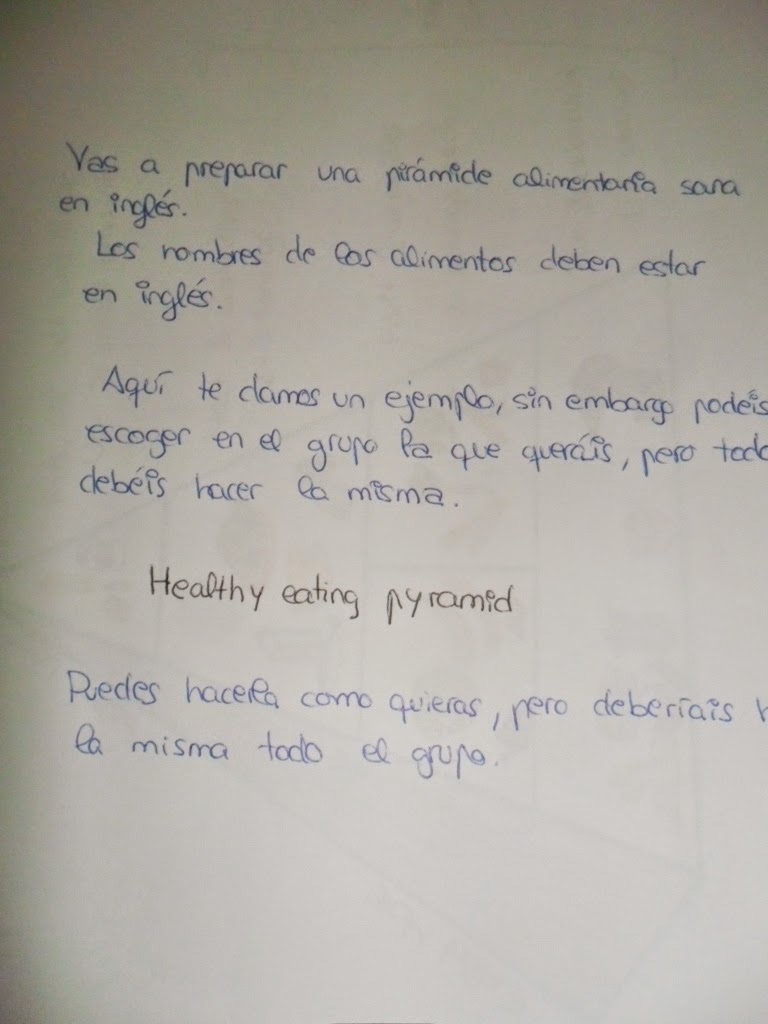 Vas a preparar una pirámide alimentaria sana
en inglés.
Los nombres de los alimentos deben estar
en inglés.
Aquí te damos un ejemplo, sin embargo podéis
escoger en el grupo la que queráis, pero todo
debéis hacer la misma.
Healthy eating pyramid
Puedes hacerla como quieras, pero deberíais
la misma todo el grupo.